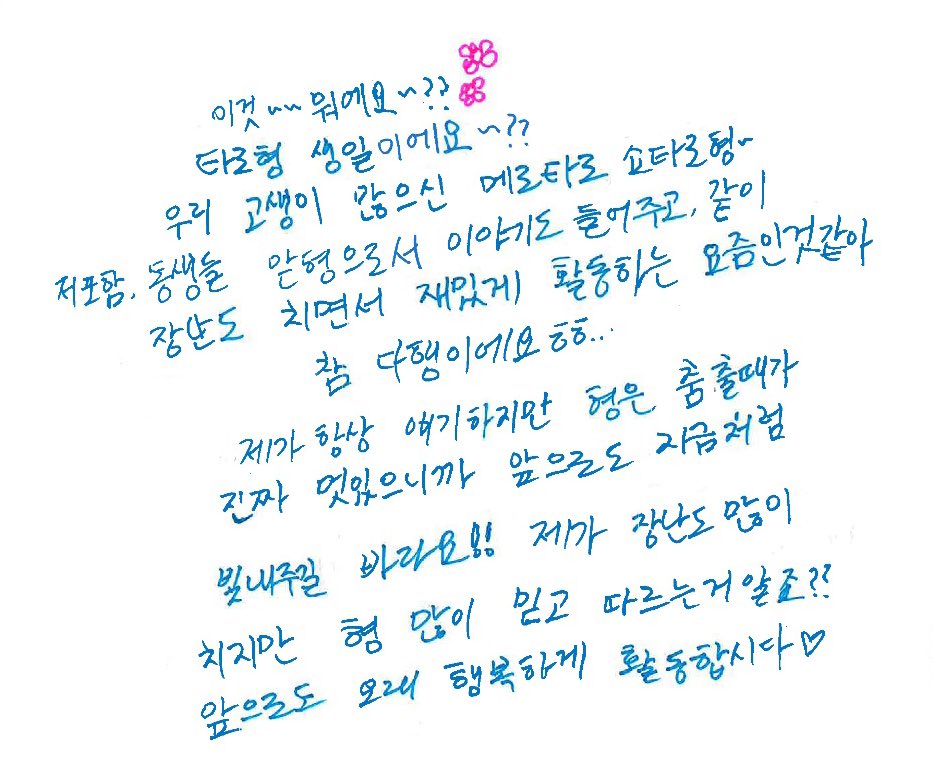 이것~~ 뭐에요~??
타로형 생일이에요~??
우리 고생이 많으신 메로타로 쇼타로형~
저포함, 동생들 맏형으로서 이야기도 들어주고, 같이
장난도 치면서 재밌게 활동하는 요즘인것같아
참 다행이에요 ㅎㅎ..
제가 항상 얘기하지만 형은 춤출때가
진짜 멋있으니까 앞으로도 지금처럼
빛내주길 바라요!! 제가 장난도 많이
치지만 형 많이 믿고 따르는거 알죠??
앞으로도 오래 행복하게 활동합시다♡